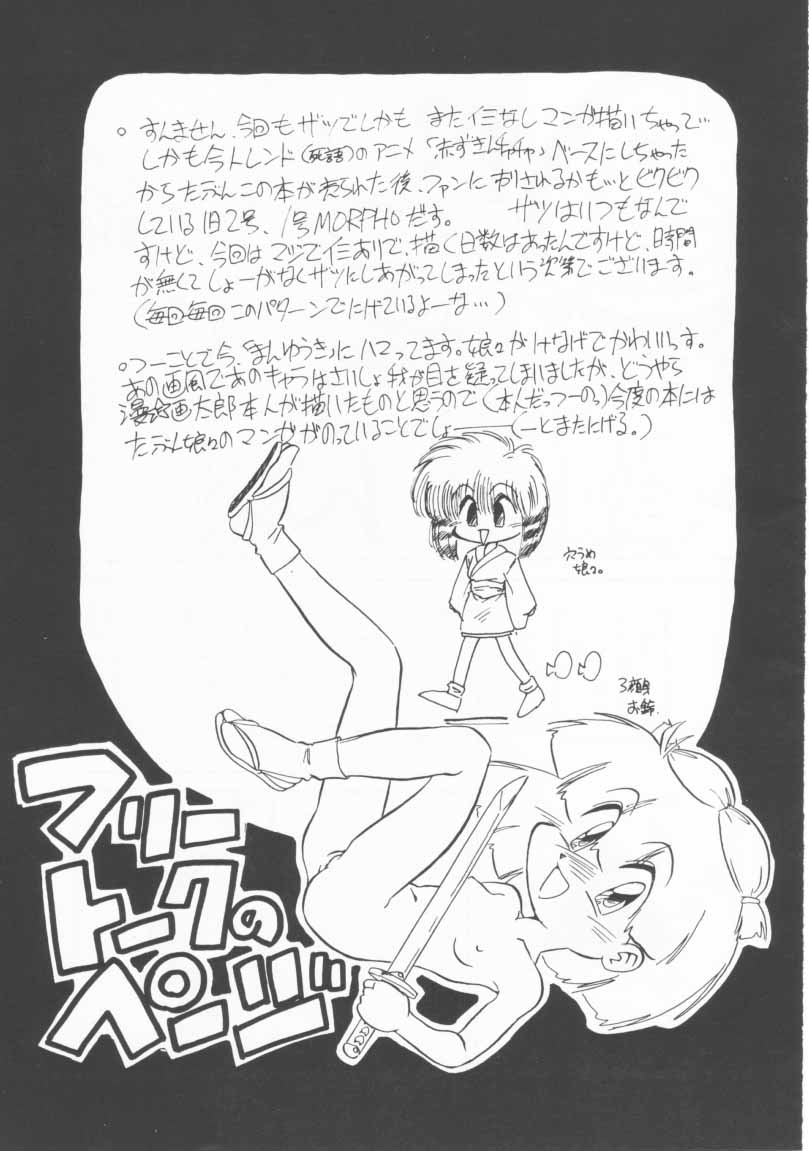 。すんません、今回もザツでしかも また イミなしマンガ描いちゃって…
しかも今トレンド(死語)のアニメ「赤ずきんチャチャ」ベースにしちゃった
からたぶんこの本が売られた後、ファンに刺されるかも…とビクビク
している旧2号、1号MORPHOだす。 ザツはいつもなんで
すけど、今回はマジでイミありで、描く日数はあったんですけど、時間
が無くてしょーがなくザツにしあがってしまったという次第でございます。
(毎回毎回このパターンでにげているよーな…)
。つーことで今、「まんゆうき」にハマってます。娘々がけなげでかわいっす。
あの画風であのキャラはさいしょ我が目を疑ってしまいましたが、どうやら
漫☆画太郎本人が描いたものと思うので(本人だっつーのっ)今度の本には
たぶん娘々のマンガがのっていることでしょーー(ーとまたにげる。)
穴うめ
娘々。
3頭身
お鈴。
フリー
トークの
ページ